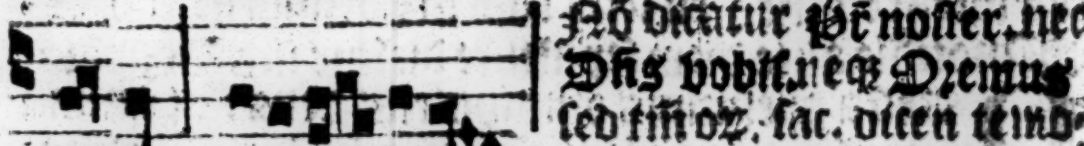 Nō dicatur Pr̄ noster, nec
Dn̄s vobiſ. neqꝫ Oremus
ſed tm̄ oꝝ. ſac. dicen